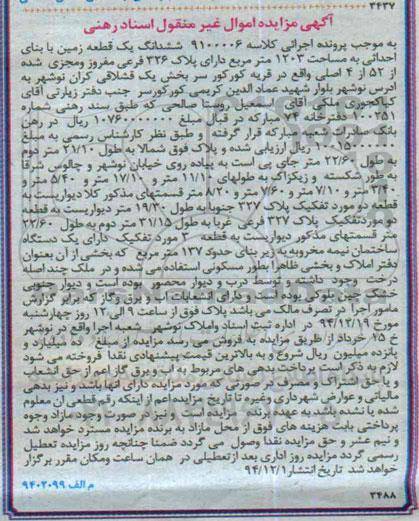 ۳۴۳۷
آگهی مزایده اموال غیر منقول اسناد رهنی
به موجب پرونده اجرائی کلاسه ۹۱۰۰۰۰۶ ششدانگ یک قطعه زمین با بنای
احداثی به مساحت ۱۲۰۳ متر مربع دارای پلاک ۳۲۶ فرعی مفروز ومجزی شده
از ۵۲ از ۴ اصلی واقع در قریه کورکور سر بخش یک قشلاقی کران نوشهر به
ادرس نوشهر بلوار شهید عماد الدین کریمی کورکورسر جنب دفتر زیارتی آقای
کیاکجوری ملکی آقای اسمعیل روستا صالحی که طبق سند رهنی شماره
۱۰۰۲۵۱ دفترخانه ۷۴ مبارکه در قبال مبلغ ۱۰۷۶۰۰۰۰۰۰۰ ریال در رهن
بانک صادرات شعبه مبارکه قرار گرفته و طبق نظر کارشناس رسمی به مبلغ
ریال ارزیابی شده و پلاک فوق شمالا به طول ۲۱/۱۰ متر دوم
به طول ۲۲/۶۰ متر جای پی است به پیاده روی خیابان نوشهر و چالوس شرقا
به طور شکسته و زیکزاک به طولهای ۱۱/۱۰ متر و ۱۷/۱۰ متر و ۵/۴۰ متر و
۳/۴۰ متر و ۷/۱۰ متر و ۷/۶۰ متر و ۸/۲۰ متر قسمتهای مذکور کلا دیواریست به
قطعه دو مورد تفکیک پلاک ۳۲۷ جنوبا به طول ۱۹/۳۰ متر دیواریست به قطعه
دو مورد تفکیک پلاک ۳۲۷ فرعی غربا به طول ۳۱/۱۵ متر دوم به طول ۲۲/۶۰
متر قسمتهای مذکور دیواریست به قطعه ۲ مورد تفکیک دارای یک دستگاه
ساختمان نیمه مخروبه به زیر بنای حدود ۱۳۷ متر مربع که بخشی از آن بعنوان
دفتر املاک و بخشی ظاهرا بطور مسکونی استفاده می شده و در ملک چند اصله
درخت وجود داشته و توسط درب و دیوار محصور بوده است و دیوار جنوبی
آن چین بلوکی بوده است و دارای انشعابات آب و برق و گاز که برابر گزارش
مامور اجرا در تصرف مالک می باشد پلاک فوق از ساعت ۹ الی ۱۲ روز چهارشنبه
مورخ ۹۴/۱۲/۱۹ در اداره ثبت اسناد واملاک نوشهر_ شعبه اجرا واقع در نوشهر
خ ۱۵ خرداد از طریق مزایده به فروش می رسد مزایده از مبلغ ده میلیارد و
پانزده میلیون ریال شروع و به بالاترین قیمت پیشنهادی نقدا فروخته می شود
لازم به ذکر است پرداخت بدهی های مربوط به اب و برق گاز اعم از حق انشعاب
و یا حق اشتراک و مصرف در صورتی که مورد مزایده دارای انها باشد و نیز بدهی
مالیاتی و عوارض شهرداری وغیره تا تاریخ مزایده اعم از اینکه رقم قطعی ان معلوم
شده یا نشده باشد به عهده برنده مزایده است و نیز در صورت وجود مازاد وجوه
پرداختی بابت هزینه های فوق از محل مازاد به برنده مزایده مسترد خواهد شد
و نیم عشر و حق مزایده نقدا وصول می گردد ضمنا چنانچه روز مزایده تعطیل
رسمی گردد مزایده روز اداری بعد از تعطیلی در همان ساعت ومکان مقرر برگزار
خواهد شد تاریخ انتشار ۹۴/۱۲/۱
م الف ۹۴۰۲۰۹۹
۳۴۸۸